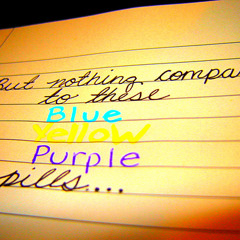 But nothing compa
to these
Blue
Yellow
Purple
pills....